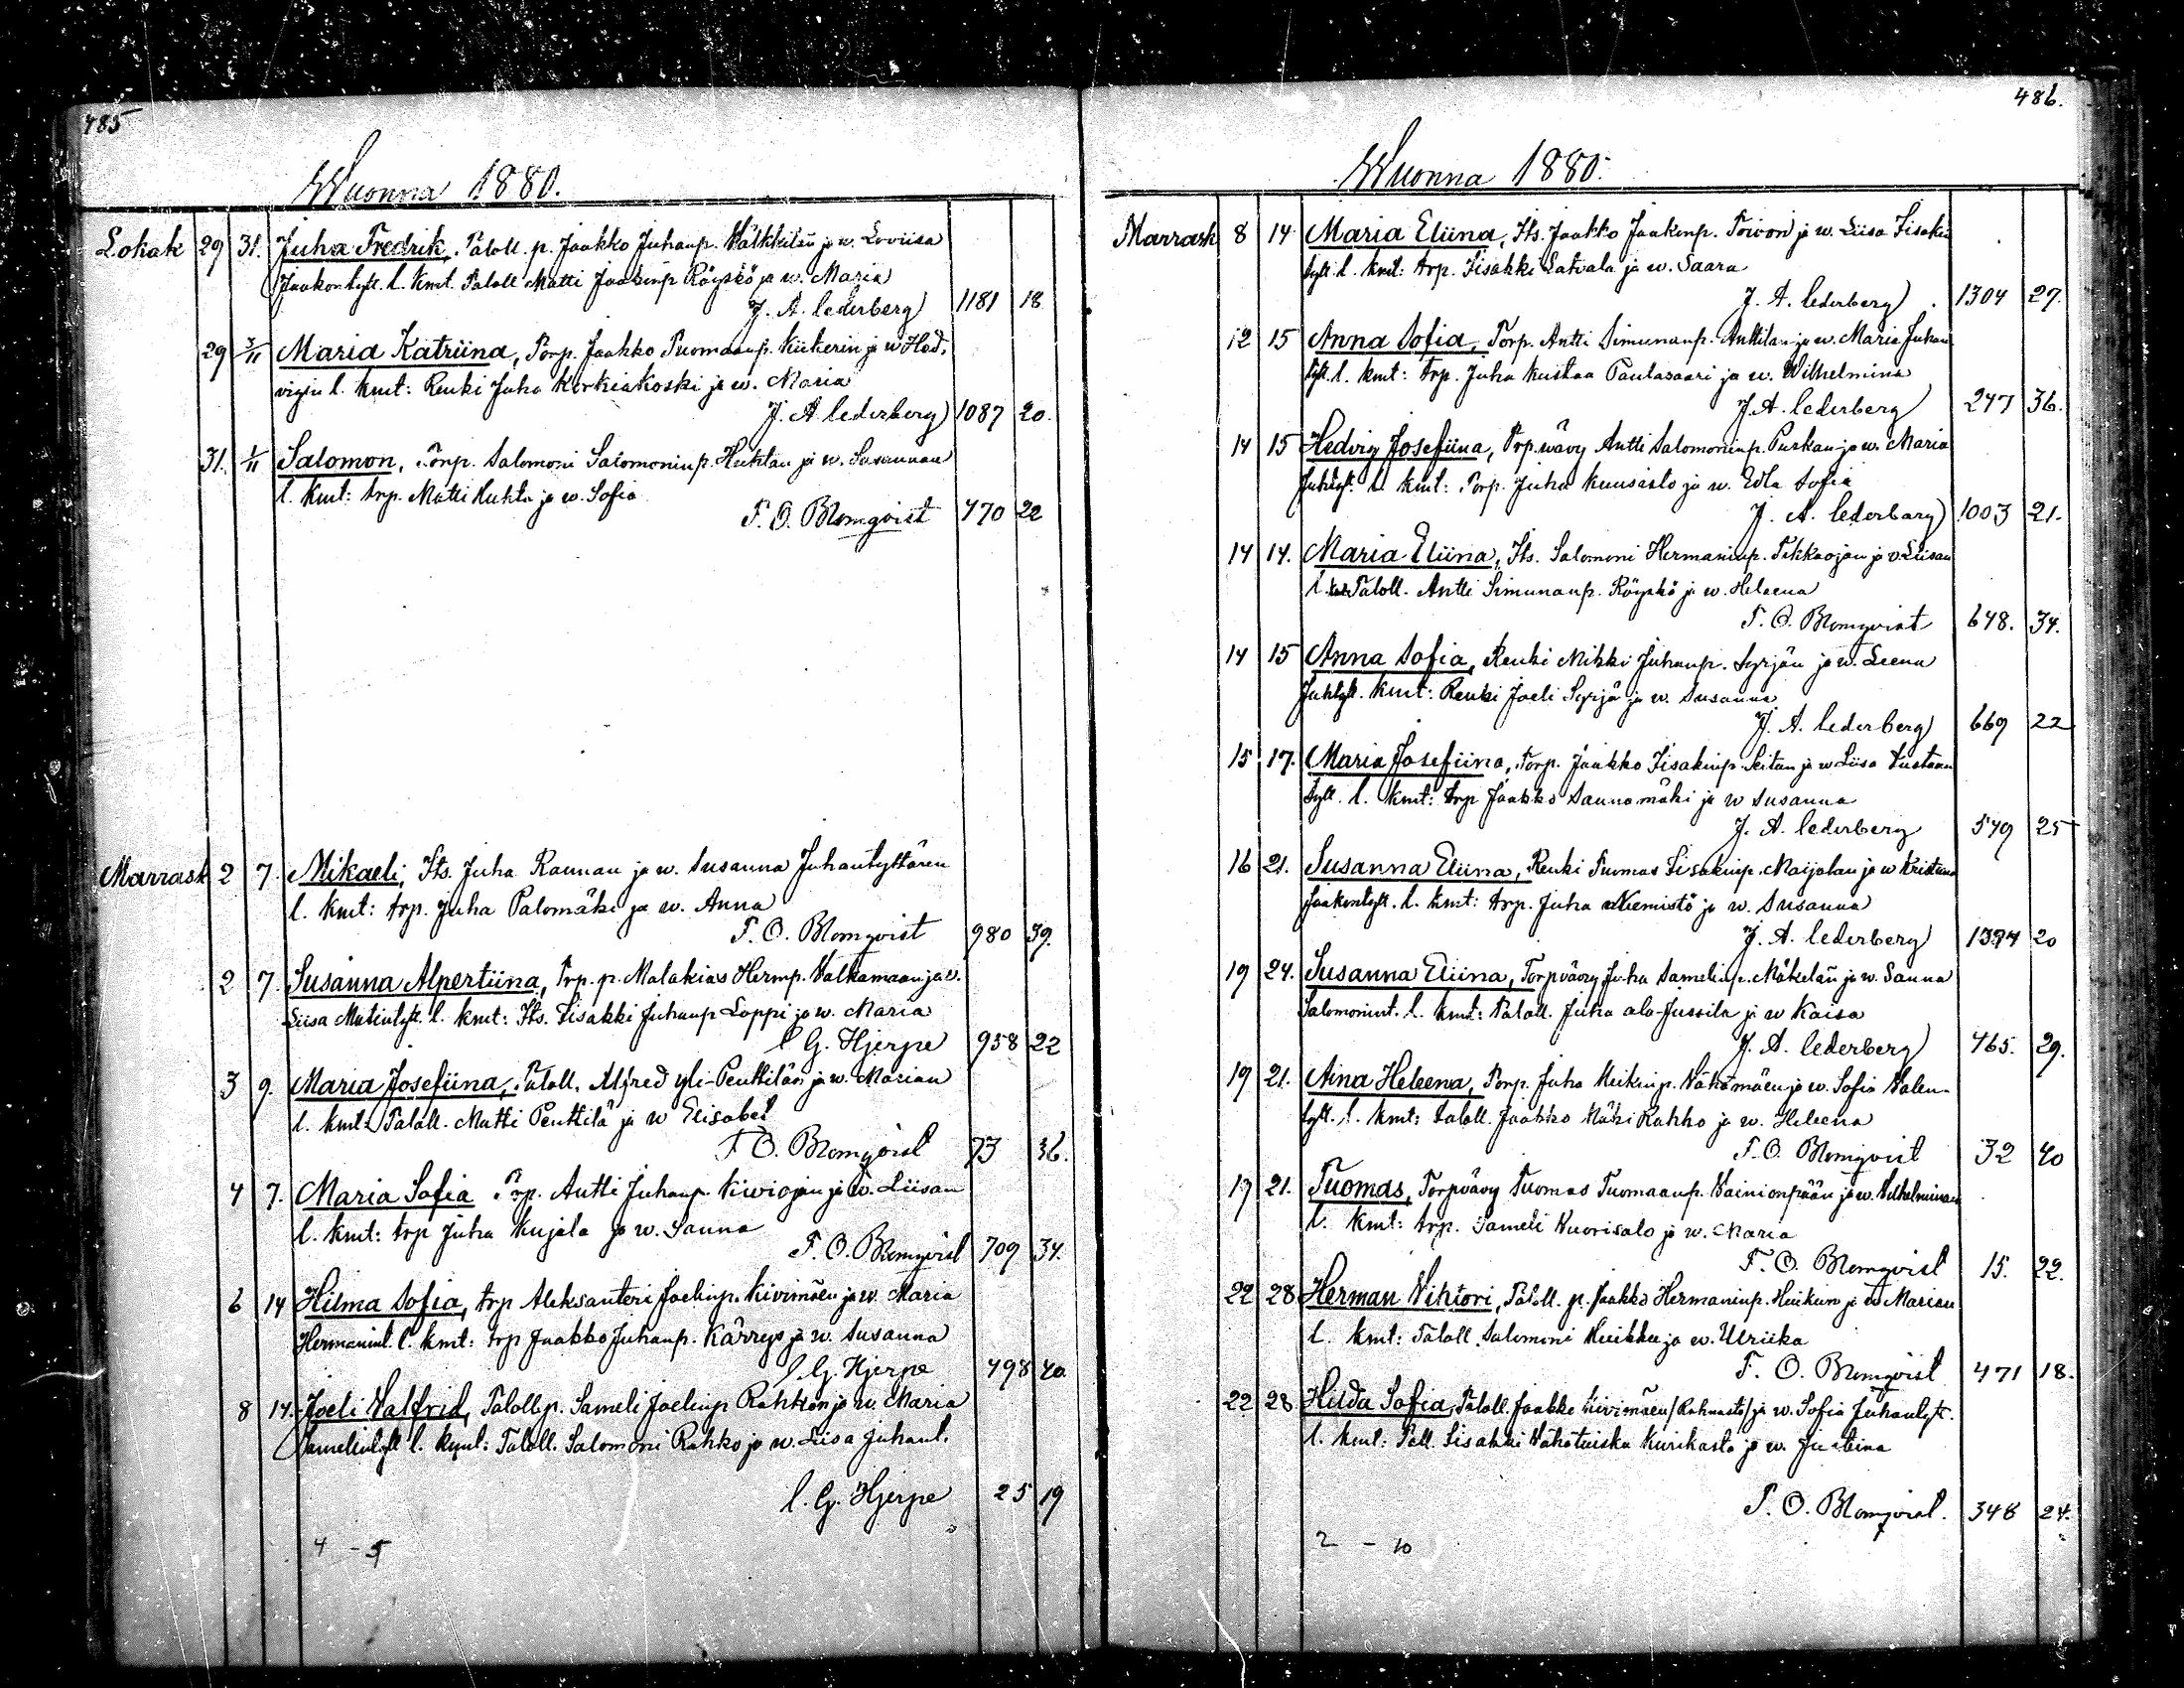 485
Wuonna 1880.
Lokak 29 31. Juha Fredrik, Taloll. p. Jaakko Juhanp. Wälkkilän ja w. Loviisa
Jaakontytt. l. kmt. Taloll Matti Jaakinp Röyskö ja w. Maria
J. A. Cederberg 1181 18
29 3/11 Maria Katriina, Torp. Jaakko Tuomaanp. Kiikerin ja w Hed.
vigin l. kmt: Renki Juha Kerkiäkoski ja w. Maria
J. A. Cederberg 1087 20.
31. 1/11 Salomon, Torp. Salomoni Salomoninp. Huhtan ja w. Susannan
l. kmt: trp. Matti Huhta ja w. Sofia
F. O. Blomqvist 770 22
Marrask 2 7. Mikaeli, Its. Juha Rannan ja w. Susanna Juhantyttären
l. kmt: trp. Juha Palomäki ja w. Anna
F. O. Blomqvist 980 39.
2 7. Susanna Alpertiina, Trp. p. Malakias Hermp. Valkamaan ja w.
Liisa Matintytt. l. kmt: Its. Iisakki Juhanp Loppi ja w. Maria
C G. Hjerpe 958 22
3 9. Maria Josefiina, Taloll. Alfred yli-Penttilän ja w. Marian
l. kmt: Taloll. Matti Penttilä ja w Elisabet
F O. Blomqvist 73 36.
4 7. Maria Sofia Trp. Antti Juhanp. Kiviojan ja w. Liisan
l. kmt: trp Juha Kujala ja w. Sanna
F. O. Blomqvist 709 34.
6 14 Hilma Sofia, trp Aleksanteri Joelinp. Kivimäen ja w. Maria
Hermanint. l. kmt: trp Jaakko Juhanp. Kärrys ja w. Susanna
C. G. Hjerpe 498 40
8 14. Joeli Walfrid, Taloll p. Sameli Joelinp Rahkon ja w. Maria
Samelintytt l. kmt: Taloll. Salomoni Rahko ja w. Liisa Juhant.
C. G. Hjerpe 25 19
4 - 5
486.
Wuonna 1880.
Marrask 8 14 Maria Eliina, Its. Jaakko Jaakonp. Toivon ja w. Liisa Iisakin
tytt. l. kmt: trp. Iisakki Latvala ja w. Saara
J. A. Cederberg 1304 27.
12 15 Anna Sofia, Torp. Antti Simunanp. Anttilan ja w. Maria Juhan
tytt. l. kmt: trp. Juha Kustaa Paulasaari ja w. Wilhelmina
J. A. Cederberg 247 36.
14 15 Hedvig Josefiina, Trp. wävy Antti Salomoninp. Purkan ja w. Maria
Juhtyt. l. kmt: Torp. Juha Kuusisto ja w. Edla Sofia
J. A. Cederberg 1003 21.
14 14. Maria Eliina, Its. Salomoni Hermaninp. Tikkaojan ja v. Liisan
l. Taloll. Antti Simunanp. Röyskö ja w. Heleena
F. O. Blomqvist 648. 34.
14 15 Anna Sofia, Renki Mikki Juhanp. Syrjän ja w. Leena
Juhtytt. kmt: Renki Joeli Syrjä ja w. Susanna
J. A. Cederberg 669 22
15 17. Maria Josefiina, Torp. Jaakko Iisakinp. ja w Liisa Kustaan
tytt. l. kmt: trp Jaakko Saunamäki ja w Susanna
J. A. Cederberg 549 25
16 21. Susanna Eliina, Renki Tuomas Iisakinp. Maijalan ja w Kristiina
Jaakontytt. l. kmt: trp. Juha Niemistö ja w. Susanna
J. A. Cederberg 1394 20
19 24. Susanna Eliina, Torpvävy Juha Samelinp. Mäkelän ja w. Sanna
Salomonint. l. kmt: Taloll. Juha ala-Jussila ja w Kaisa
J. A. Cederberg 465. 29.
19 21. Aina Heleena, Torp. Juha Heikinp. Vähämäen ja w. Sofia Walen-
tytt. l. kmt: taloll. Jaakko Mäki Rahko ja w. Heleena
F. O. Blomqvist 32 40
19 21. Tuomas, Torpvävy Tuomas Tuomaanp. Wainionpään ja w. Wilhelminan
l. kmt: trp. Sameli Vuorisalo ja w. Maria
F. O. Blomqvist 15. 22.
22 28 Herman Wihtori, Taloll. p. Jaakko Hermaninp. Huikun ja w Marian
l. kmt: Taloll Salomoni Huikku ja w. Ulriika
F. O. Blomqvist 471 18.
22 28 Hilda Sofia, Taloll. Jaakko Kivimäen ja w. Sofia Juhantytt.
l. kmt: Tall. Iisakki Kurikasta ja w. Justiina
F. O. Blomqvist. 346 24.
2 - 10